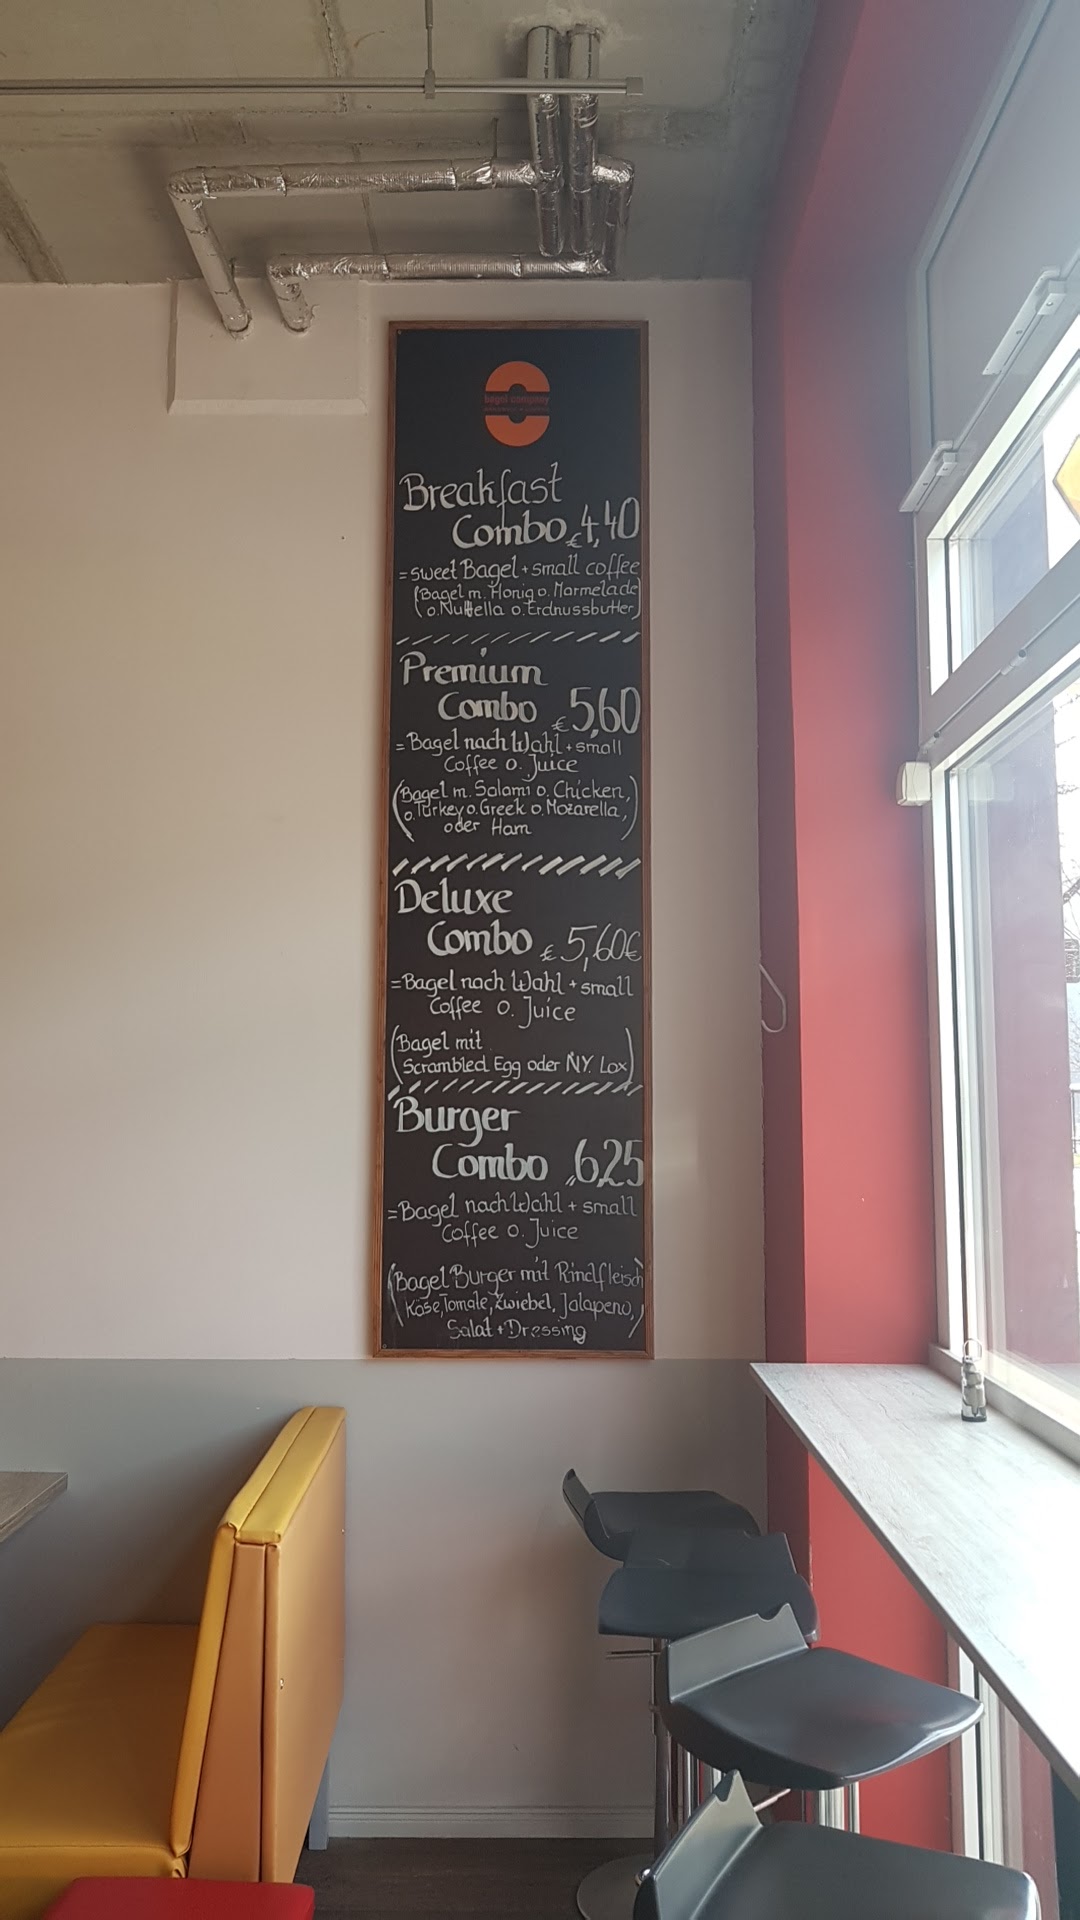 bagel company
Breakfast
Combo € 4,40
= sweet Bagel + small coffee
(Bagel m. Honig o. Marmelade
o. Nuttella o. Erdnussbutter)
Premium
Combo € 5,60
= Bagel nach Wahl + small
Coffee o. Juice
(Bagel m. Salami o. Chicken,
o. Turkey o. Greek o. Mozarella,
oder Ham)
Deluxe
Combo € 5,60€
= Bagel nach Wahl + small
Coffee o. Juice
(Bagel mit
Scrambled Egg oder N.Y. Lox)
Burger
Combo 6,25
= Bagel nach Wahl + small
Coffee o. Juice
(Bagel Burger mit Rindfleisch
Käse, Tomate, Zwiebel, Jalapeno,
Salat + Dressing)